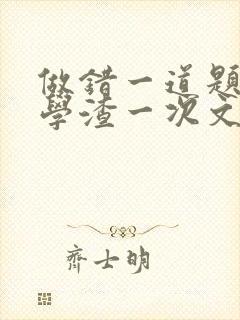 做錯一道題
學渣一次文
齊士明